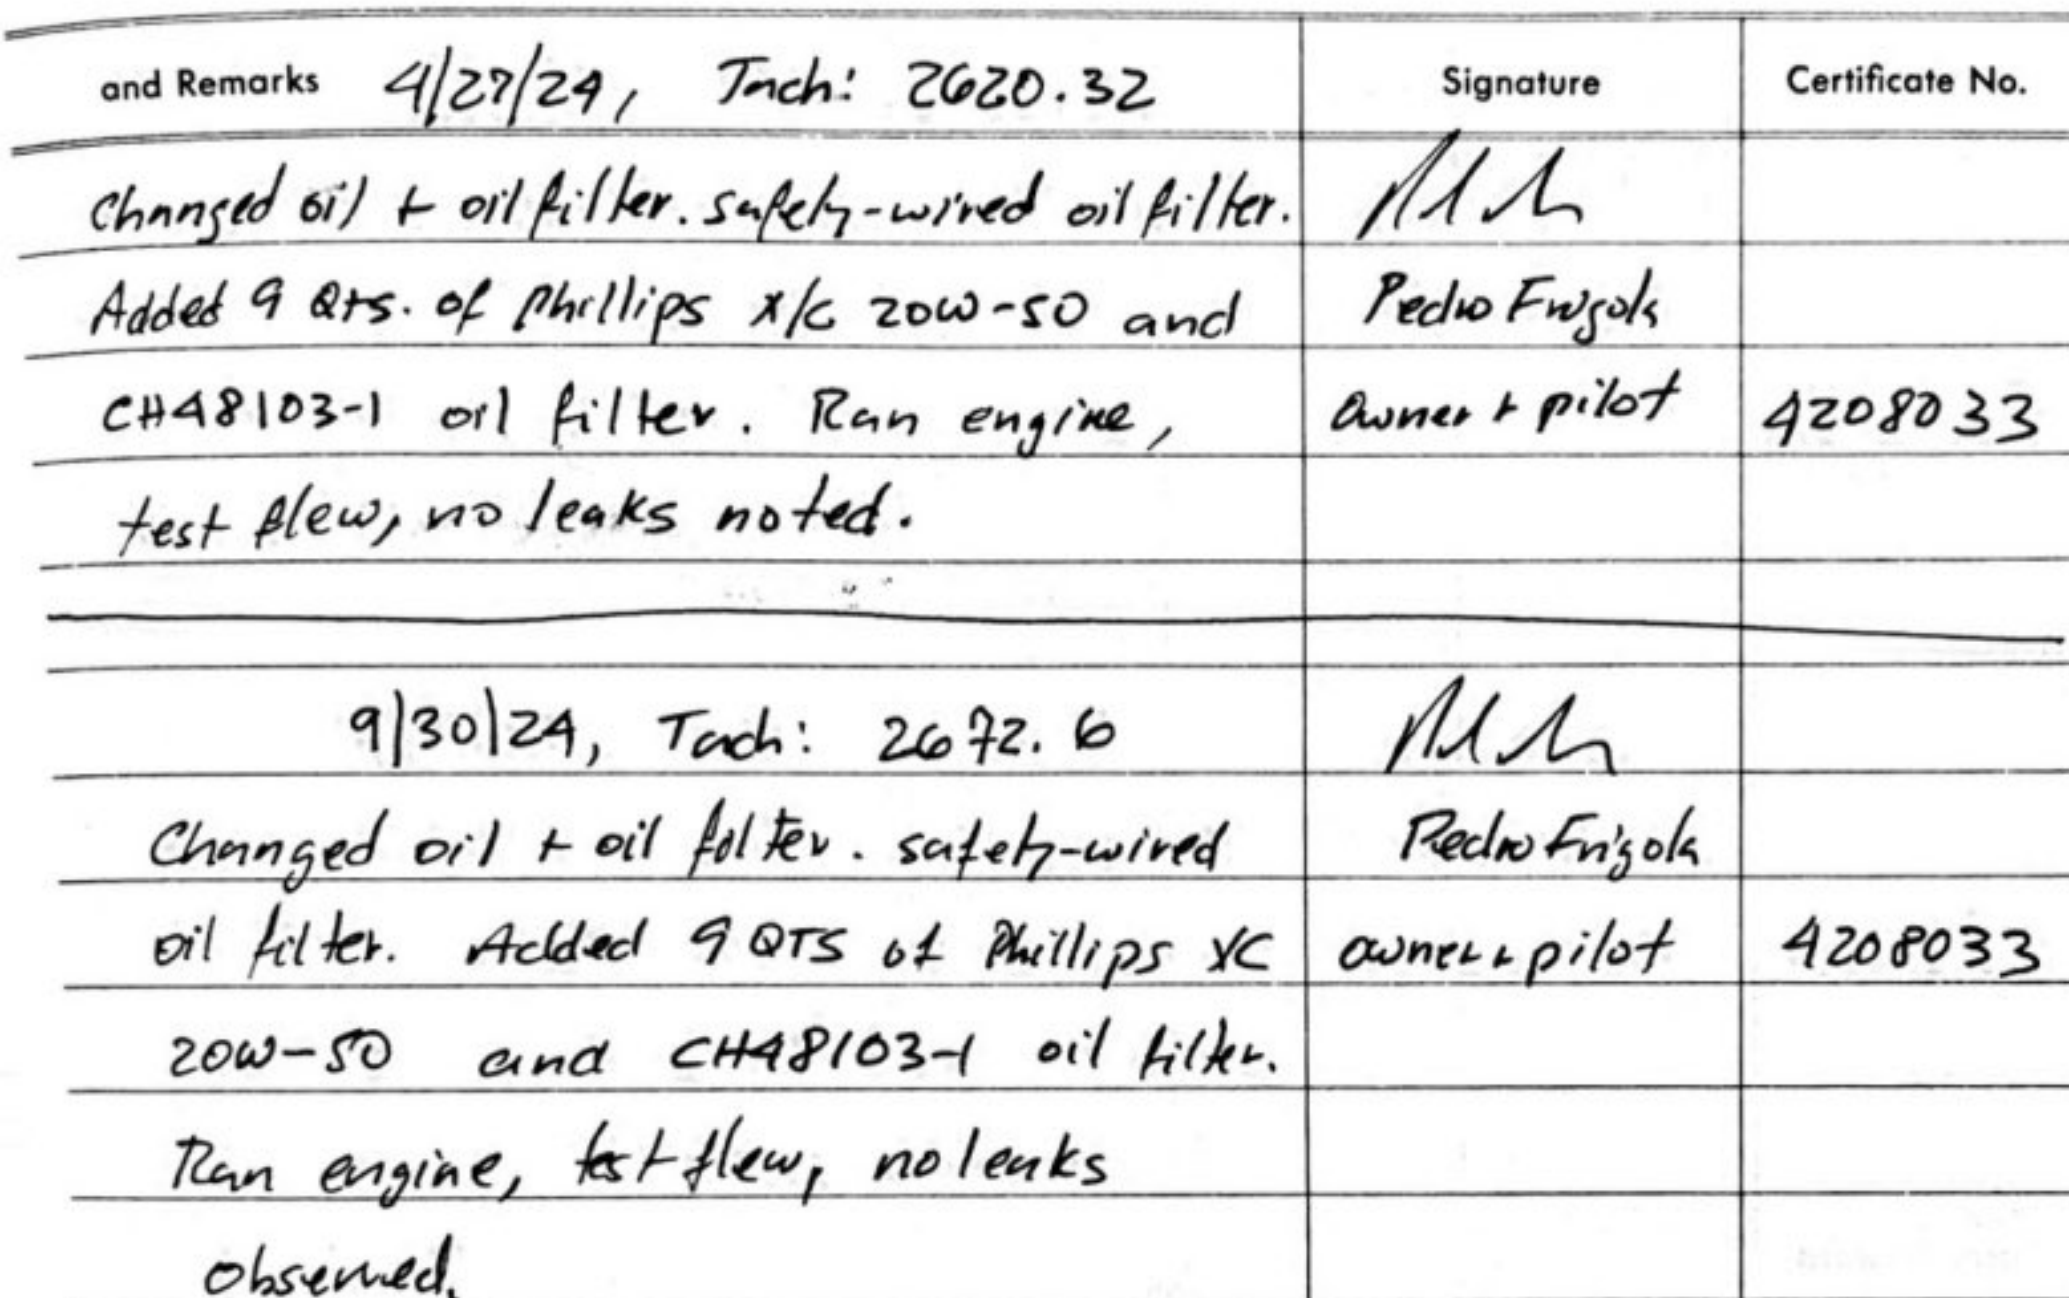 and Remarks 4/27/24, Tach: 2620.32 Signature Certificate No.
Changed oil + oil filter. safety-wired oil filter.
Added 9 Qts. of Phillips x/c 20W-50 and Pedro Frigola
CH48103-1 oil filter. Ran engine, owner + pilot 4208033
test flew, no leaks noted.
9/30/24, Tach: 2672.6
Changed oil + oil filter. safety-wired Pedro Frigola
oil filter. Added 9 QTS of Phillips XC owner + pilot 4208033
20W-50 and CH48103-1 oil filter.
Ran engine, test flew, no leaks
observed.